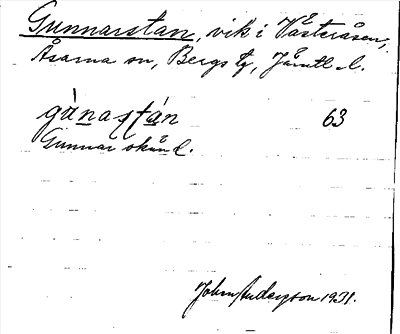 Gunnarstan, vik i Västeråsen,
Åsarna sn, Bergs tg, Jämtl. l.
gànastán 63
Gunnar
John Anderzson 1931.